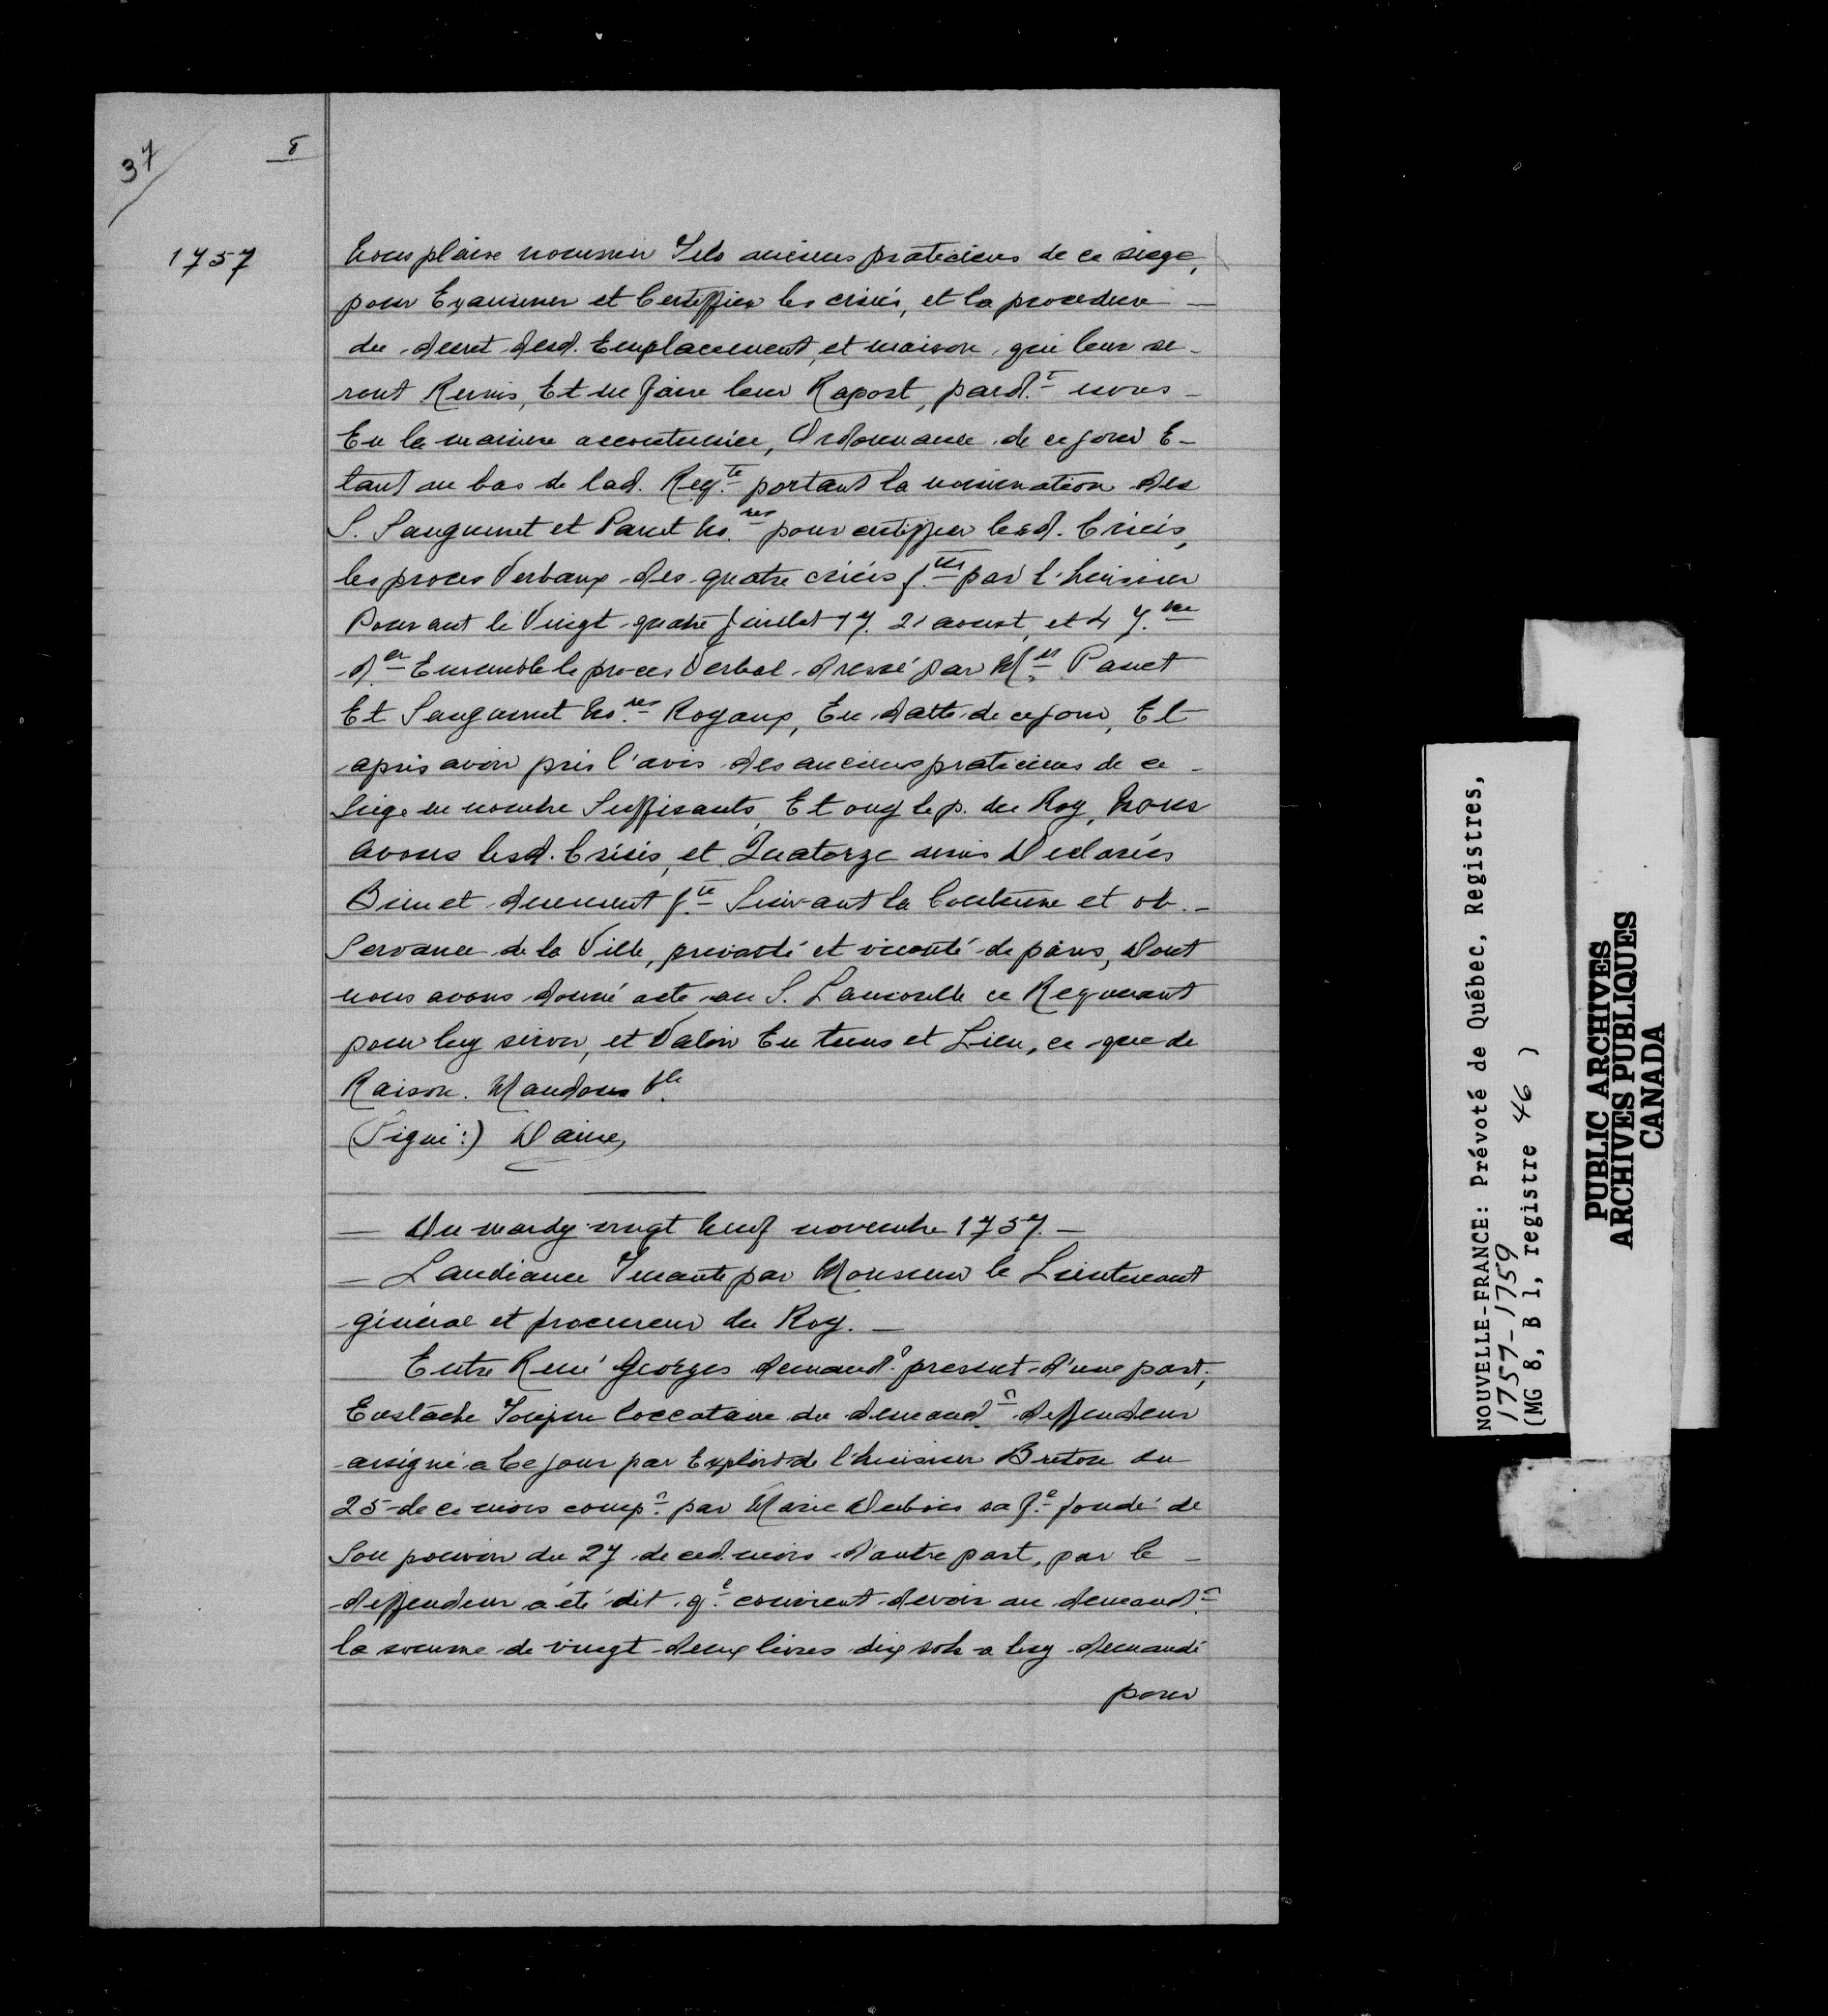 37
8
1757
Nous plaire nommer Tels anciens praticiens de ce siege,
pour Examiner et Certiffier les criées, et la procedure
du decret desd. Emplacement, et maison, qui leur se-
ront Remis, Et en faire leur Raport, pard.t nous
En la maniere accoutumée, Ordonnance de ce jour E-
tant au bas de lad. Req.te portant la nomination des
S. Sanguinet et Panet No.res pour certiffier lesd. Criées,
les proces Verbaux des quatre criées f.tes par l'huissier
Pour ant le Vingt quatre juillet 17. 21 aoust, et 4 7.bre
d.er Ensemble le proces Verbal dressé par M.es Panet
Et Sanguinet No.res Royaux, En datte de ce jour, Et
après avoir pris l'avis des anciens praticiens de ce
Siege en nombre Suffisants, Et ouy le p. du Roy, Nous
avons lesd. Criées, et Quatorze Declarées
Bien et duement f.te Suivant la Coutume et ob-
Servance de la Ville, prevosté et vicomté de paris, Dont
nous avons donné acte au S. ce Requerant
pour luy servir, et Valoir En tems et Lieu, ce que de
Raison. Mandons &.le
(Signé:) Daine,
Du mardy vingt neuf novembre 1757.
L'audiance Tenante par Monsieur le Lieutenant
général et procureur du Roy.
Entre René Georges demand.r present d'une part;
Eustache locataire du demand.r deffendeur
assigné a Ce jour par Exploit de l'huissier Breton du
25 de ce mois comp.t par Marie Dubois sa f.e fondé de
Son pouvoir du 27 de ced. mois d'autre part, par le
deffendeur a été dit q.l convient devoir au demand.r
la somme de vingt deux livres dix sols a luy demandé
pour
NOUVELLE-FRANCE: Prévoté de Québec, Registres,
1757-1759
(MG 8, B 1, registre 46 )
PUBLIC ARCHIVES
ARCHIVES PUBLIQUES
CANADA